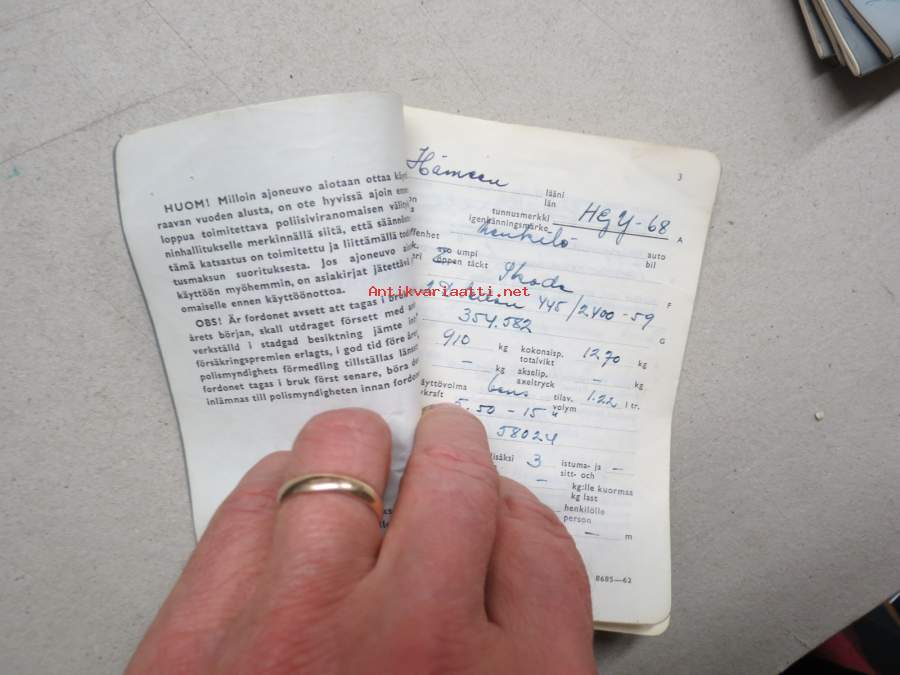 HUOM! Milloin ajoneuvo aiotaan ottaa käyt
raavan vuoden alusta, on ote hyvissä ajoin enne
loppua toimitettava poliisiviranomaisen välity
ninhallitukselle merkinnällä siitä, että säännön
tämä katsastus on toimitettu ja liittämällä tod
tusmaksun suorituksesta. Jos ajoneuvo
käyttöön myöhemmin, on asiakirjat jätettävä
omaiselle ennen käyttöönottoa.
OBS! Är fordonet avsett att tagas i bruk
årets början, skall utdraget försett med an
verkställd i stadgad besiktning jämte int
försäkringspremien erlagts, i god tid före året
polismyndighets förmedling tillställas länsst
fordonet tagas i bruk först senare, böra de
inlämnas till polismyndigheten innan fordon
3
Hämeen
lääni
län
tunnusmerkki
igenkänningsmärke
HGY-68
A
henkilö-
auto
bil
umpi
öppen täckt
Skoda
F
445/2.400-59
354.582
G
910 kg kokonaisp. totalvikt 1270 kg
– kg akselip. axeltryck – kg
äyttövoima bens. tilav. volym 1.22 l tr.
5.50-15"
58024
lisäksi 3 istuma- ja –
sitt- och
– kg:lle kuormaa
kg last
henkilölle
person
– m
8685—62
Antikvariaatti.net